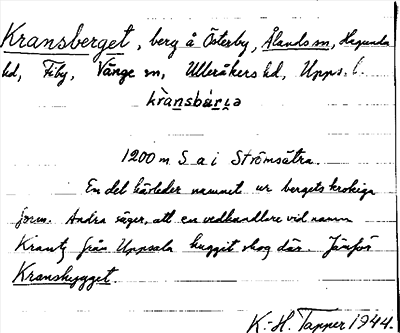 Kransberget, berg å Österby, Ålands sn, Hagunda
hd, Fiby, Vänge sn, Ulleråkers hd, Upps. l.
krànsbárjə
1200 m S a i Strömsätra.
En del härleder namnet ur bergets krokiga
form. Andra säger, att en vedhandlare vid namn
Krantz från Uppsala huggit skog där. Jämför
Kranshygget.
K.-H. Tapper 1944.